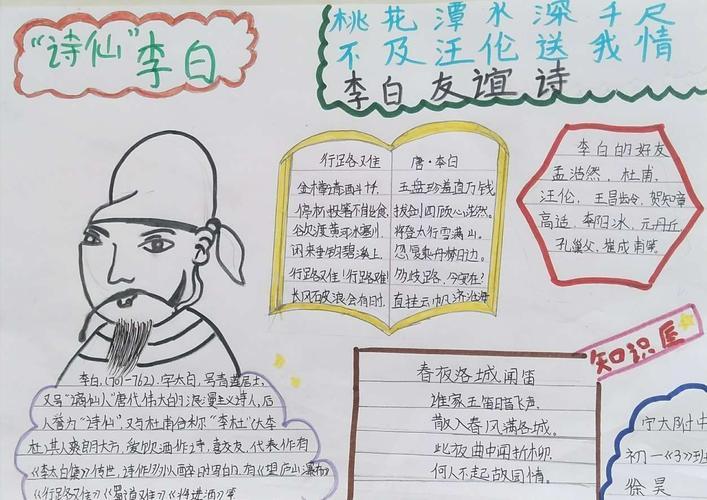 “诗仙”李白
桃花潭水深千尺
不及汪伦送我情
李白友谊诗
行路难
唐·李白
金樽清酒斗十千,
玉盘珍羞直万钱
停杯投箸不能食,
拔剑四顾心茫然。
欲渡黄河冰塞川
将登太行雪满山。
闲来垂钓碧溪上
忽复乘舟梦日边。
行路难!行路难!
多歧路,今安在?
长风破浪会有时,
直挂云帆济沧海
李白的好友
孟浩然、杜甫、
汪伦、王昌龄、贺知章
高适、李阳冰、元丹丘
孔巢父、崔成甫等。
知识星
李白,(701-762),字太白,号青莲居士,
又号“谪仙人”唐代伟大的浪漫主义诗人,后
人誉为“诗仙”,又与杜甫合称“李杜”
杜,其人爽朗大方,爱饮酒作诗,喜交友,代表作有
《李太白集》传世,诗作多以醉时写的,有《望庐山瀑布》
《行路难》《蜀道难》《将进酒》等
春夜洛城闻笛
谁家玉笛暗飞声,
散入春风满洛城。
此夜曲中闻折柳,
何人不起故园情。
宁大附中
初一《3》班
徐昊